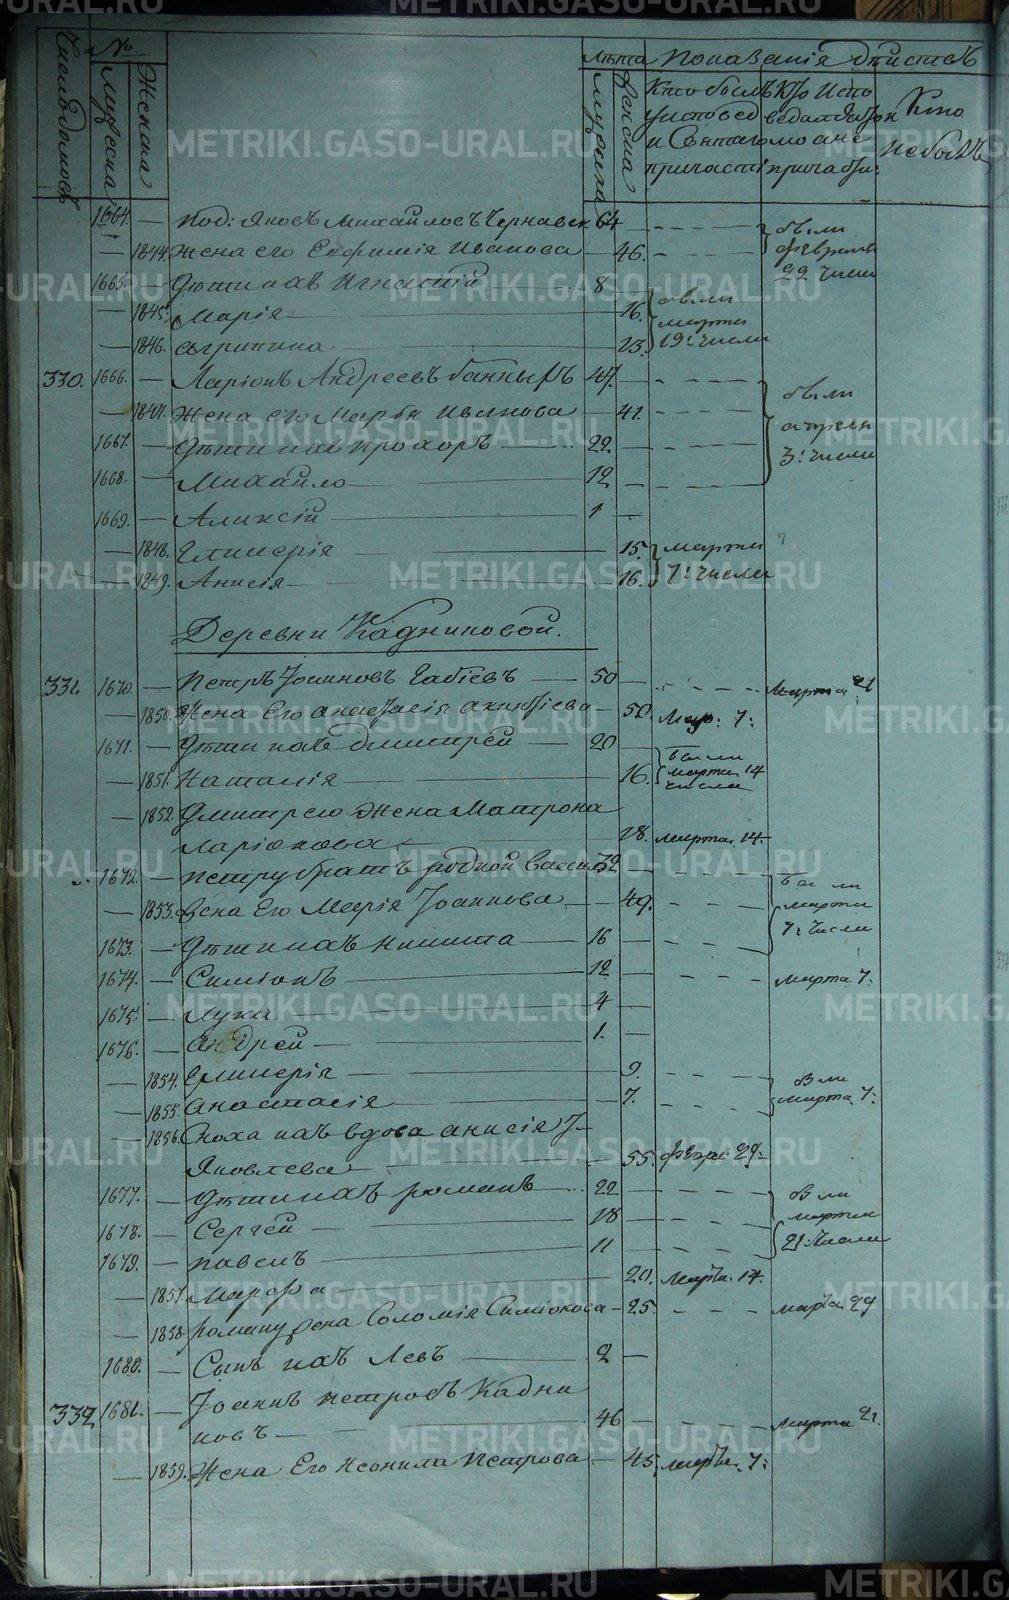 Число домовъ № Мужеска Женска Лѣта Мужска Женска Показанія дѣйствъ
Кто былъ у исповеди и Святаго причасті
Кто испо ведался а не причаст:
Кто не былъ
1664. — Под: Яковъ Михайловъ Чернавск 64 были
— 1844. Жена его Евфимія Иванова — 46. февраля 22 числа
1665. — Дѣти ихъ Игнатій — 8
— 1845. Марія — 16. были марта
— 1846. Агрипина — 13. 19: числа
330. 1666. — Ларіонъ Андреевъ 47.
— 1847. Жена его Марѳа Иванова — 41. были
1667. — Дѣти ихъ Прохоръ — 22. апреля
1668. — Михайло — 12 3: числа
1669. — Аликсій — 1 —
— 1848. Гликерія — 15. марта
— 1849. Анисія — 16. 7: числа
Деревни Кадниковой.
331. 1670. — Петръ Іоанновъ — 50 — Марта 21
— 1850. Жена Его Анастасія — 50. Мар: 7:
1671. — Дѣти ихъ Дмитрей — 20 были
— 1851. Наталія — 16. марта 14 числа
— 1852. Дмитрею Жена Матрона
Ларіонова — 18. марта 14.
1672. — Петру братъ родной Васил 52 были
— 1853. Жена Его Марія Іоаннова — 49. марта
1673. — Дѣти ихъ Никита — 16 — 7: числа
1674. — Симіонъ — 12 — марта 7:
1675. — Лука — 4 —
1676. — Андрей — 1. —
— 1854. Гликерія — 9. были
— 1855. Анастасія — 7. марта 7:
— 1856. Сноха ихъ вдова Анисія
Яковлева — 55. февра: 29:
1677. — Дѣти ихъ Романъ — 22 были
1678. — Сергей — 18 марта
1679. — Павелъ — 11 21 числа
— 1857. Марфа — 20. Март: 14.
— 1858. Роману Жена Соломія Симіонова — 25. марта 29
1680. — Сынъ ихъ Левъ — 2 —
332 1681. — Іоаннъ Петровъ Кадни
ковъ — 46 — марта 21.
— 1859. Жена Его Неонила Петрова — 45. март: 7:
METRIKI.GASO-URAL.RU